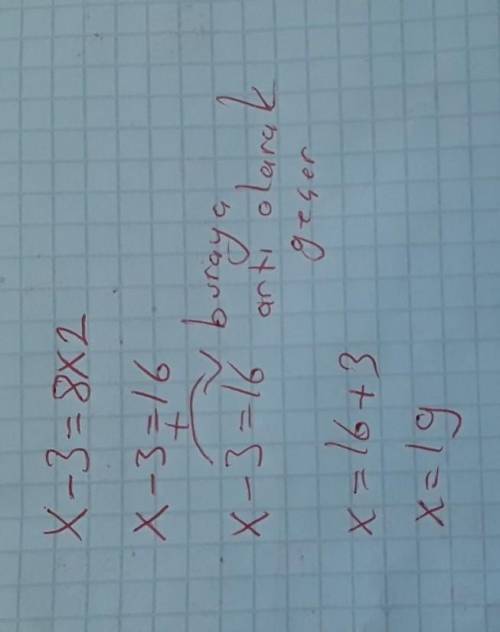 x-3=8x2
x-3=16
+
x-3=16 buraya
artı olarak
geçer
x=16+3
x=19